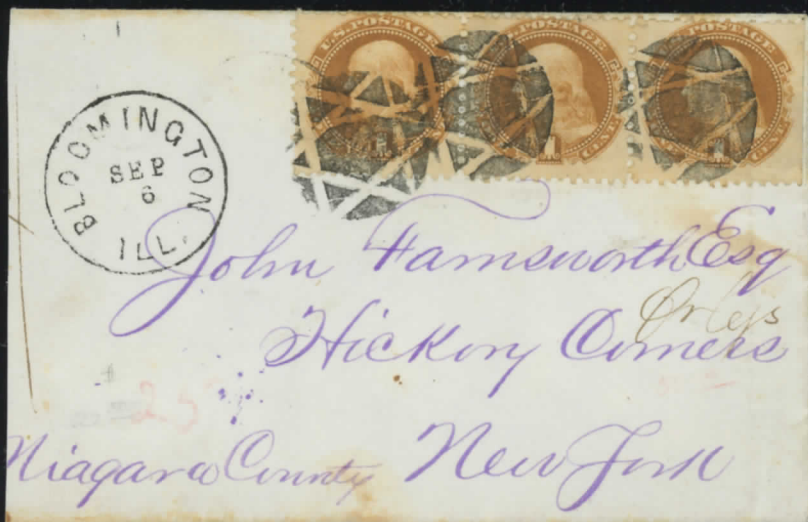 U.S. POSTAGE U.S. POSTAGE POSTAGE
1 CENT 1 CENT
BLOOMINGTON
SEP
6
ILL.
John Farnsworth Esq
Hickory Corners
Niagara County New York